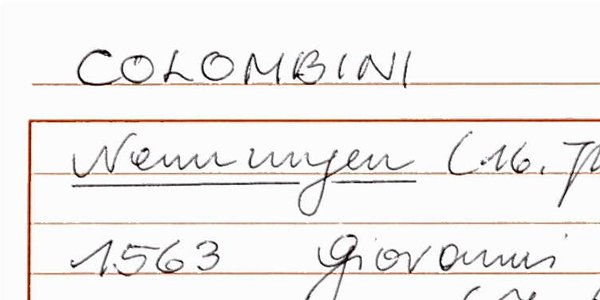 COLOMBINI
Nennungen (16. Jh
1563 Giovanni